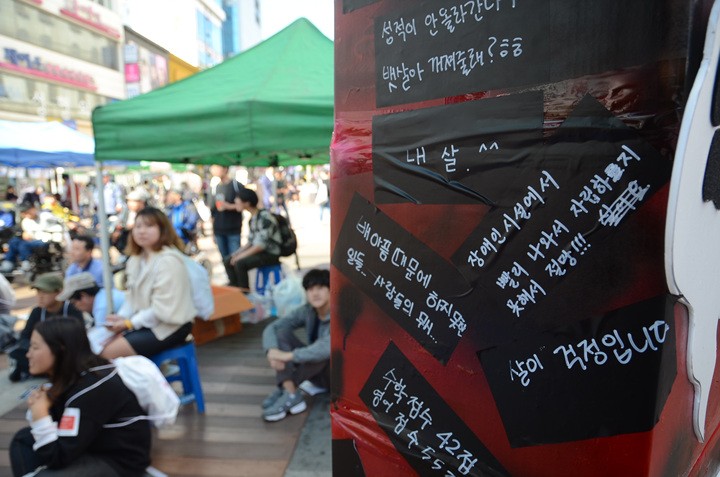 성적이 안올라간다
뱃살아 꺼져줄래? ㅎ
내 살. ^^
장애인시설에서
빨리 나와서 자립하지
못해서 절망!!!
배아픔 때문에 하지못한
일들. 사람들의 무시
살이 걱정입니다
수학점수 42점
영어점수 55점